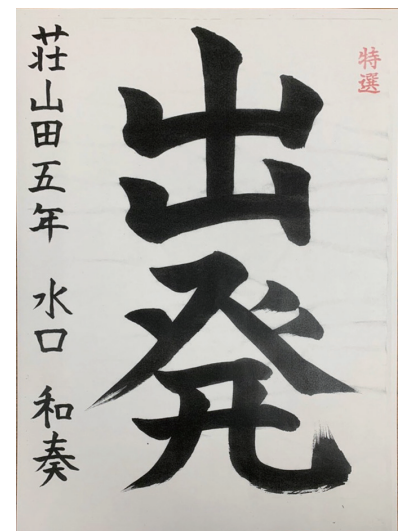 特選
出発
荘山田五年 水口 和奏